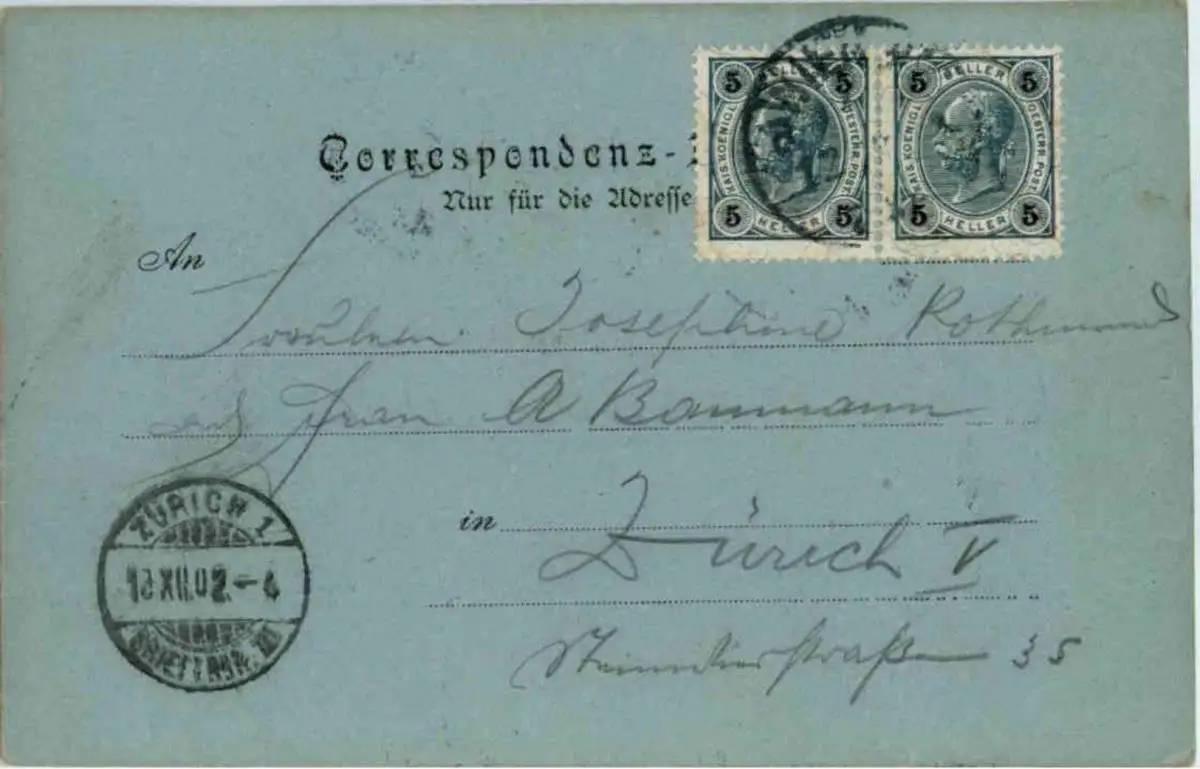 5 HELLER 5 5 HELLER 5
KAIS. KOENIGL. OESTERR. POST. KAIS. KOENIGL. OESTERR. POST.
5 HELLER 5 5 HELLER 5
Correspondenz-
Nur für die Adresse
An
Fräulein Josephine Rothmund
Frau A Baumann
in Zürich V
35
ZÜRICH 1
XII.02.-4
BRIEFTRÄG.